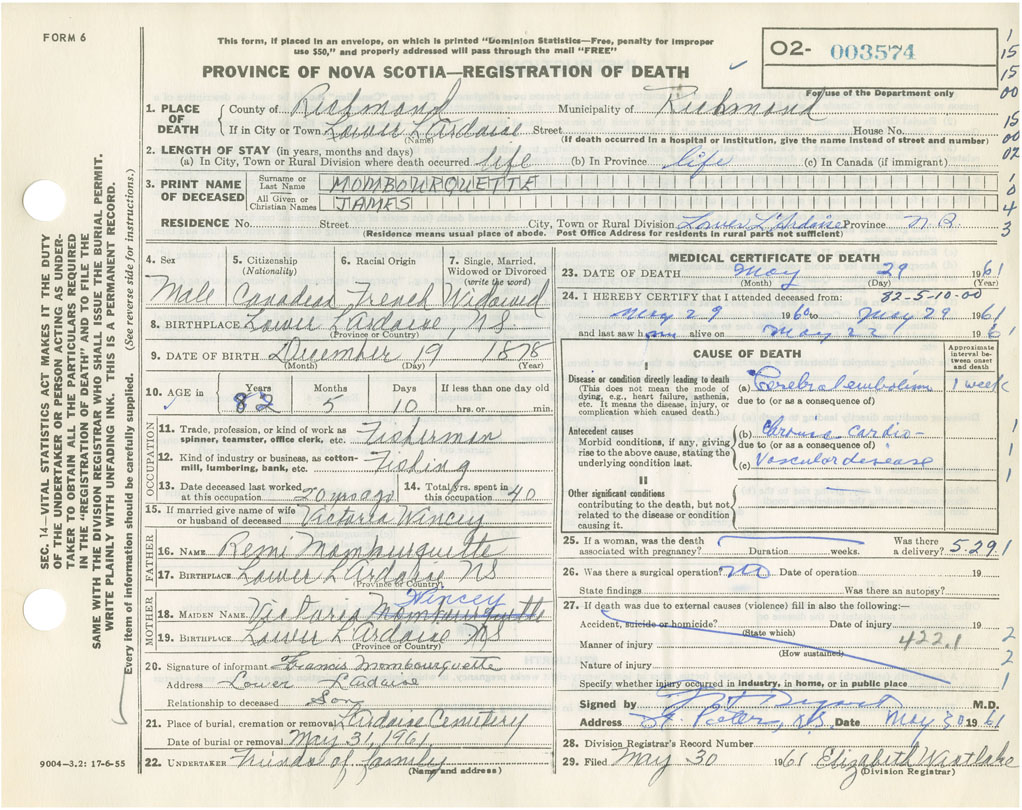 FORM 6
This form, if placed in an envelope, on which is printed "Dominion Statistics—Free, penalty for improper
use $50," and properly addressed will pass through the mail "FREE"
PROVINCE OF NOVA SCOTIA—REGISTRATION OF DEATH
02- 003574
For use of the Department only
1. PLACE OF DEATH County of Richmond Municipality of Richmond
If in City or Town Lower L'Ardoise Street House No.
(Name) (If death occurred in a hospital or institution, give the name instead of street and number)
2. LENGTH OF STAY (in years, months and days)
(a) In City, Town or Rural Division where death occurred life (b) In Province life (c) In Canada (if immigrant)
3. PRINT NAME OF DECEASED Surname or Last Name MOMBOURQUETTE
All Given or Christian Names JAMES
RESIDENCE No. Street City, Town or Rural Division Lower L'Ardoise Province
(Residence means usual place of abode. Post Office Address for residents in rural parts not sufficient)
4. Sex Male
5. Citizenship (Nationality) Canadian
6. Racial Origin French
7. Single, Married, Widowed or Divorced (write the word) Widowed
8. BIRTHPLACE Lower L'Ardoise, NS
(Province or Country)
9. DATE OF BIRTH December 19 1878
(Month) (Day) (Year)
10. AGE in Years 82 Months 5 Days 10 If less than one day old hrs. or min.
OCCUPATION
11. Trade, profession, or kind of work as spinner, teamster, office clerk, etc. Fisherman
12. Kind of industry or business, as cotton-mill, lumbering, bank, etc. Fishing
13. Date deceased last worked at this occupation 20 yrs ago 14. Total yrs. spent in this occupation 40
15. If married give name of wife or husband of deceased Victoria Wincey
FATHER
16. NAME Remi Mombourquette
17. BIRTHPLACE Lower L'Ardoise NS
(Province or Country)
MOTHER
18. MAIDEN NAME Victoria Mombourquette Wincey
19. BIRTHPLACE Lower L'Ardoise NS
(Province or Country)
20. Signature of informant Francis Mombourquette
Address Lower L'Ardoise
Relationship to deceased Son
21. Place of burial, cremation or removal L'Ardoise Cemetery
Date of burial or removal May 31, 1961
22. UNDERTAKER Friends of family
(Name and address)
MEDICAL CERTIFICATE OF DEATH
23. DATE OF DEATH May 29 1961
(Month) (Day) (Year)
24. I HEREBY CERTIFY that I attended deceased from: 82-5-10-00
May 29 1960 to May 29 1961
and last saw him alive on May 22 1961
CAUSE OF DEATH
Approximate interval between onset and death
I
Disease or condition directly leading to death
(This does not mean the mode of dying, e.g., heart failure, asthenia, etc. It means the disease, injury, or complication which caused death.)
(a) Cerebral embolism 1 week
due to (or as a consequence of)
Antecedent causes
Morbid conditions, if any, giving rise to the above cause, stating the underlying condition last.
(b) Chronic cardio-
due to (or as a consequence of)
(c) Vascular disease
II
Other significant conditions
contributing to the death, but not related to the disease or condition causing it.
25. If a woman, was the death associated with pregnancy? Duration weeks. Was there a delivery? 5-291
26. Was there a surgical operation? no Date of operation 19
State findings Was there an autopsy?
27. If death was due to external causes (violence) fill in also the following:—
Accident, suicide or homicide? Date of injury 19
(State which)
422.1
Manner of injury
(How sustained)
Nature of injury
Specify whether injury occurred in industry, in home, or in public place
Signed by M.D.
Address St. Peters, N.S. Date May 30 1961
28. Division Registrar's Record Number
29. Filed May 30 1961 Elizabeth
(Division Registrar)
9004—3.2: 17-6-55
SEC. 14—VITAL STATISTICS ACT MAKES IT THE DUTY
OF THE UNDERTAKER OR PERSON ACTING AS UNDER-
TAKER TO OBTAIN ALL THE PARTICULARS REQUIRED
IN THE "REGISTRATION OF DEATH" AND TO FILE THE
SAME WITH THE DIVISION REGISTRAR WHO SHALL ISSUE THE BURIAL PERMIT.
WRITE PLAINLY WITH UNFADING INK. THIS IS A PERMANENT RECORD.
Every item of information should be carefully supplied. (See reverse side for instructions.)
1
15
15
00
15
00
02
1
0
4
3
1
1
1
1
2
2
1